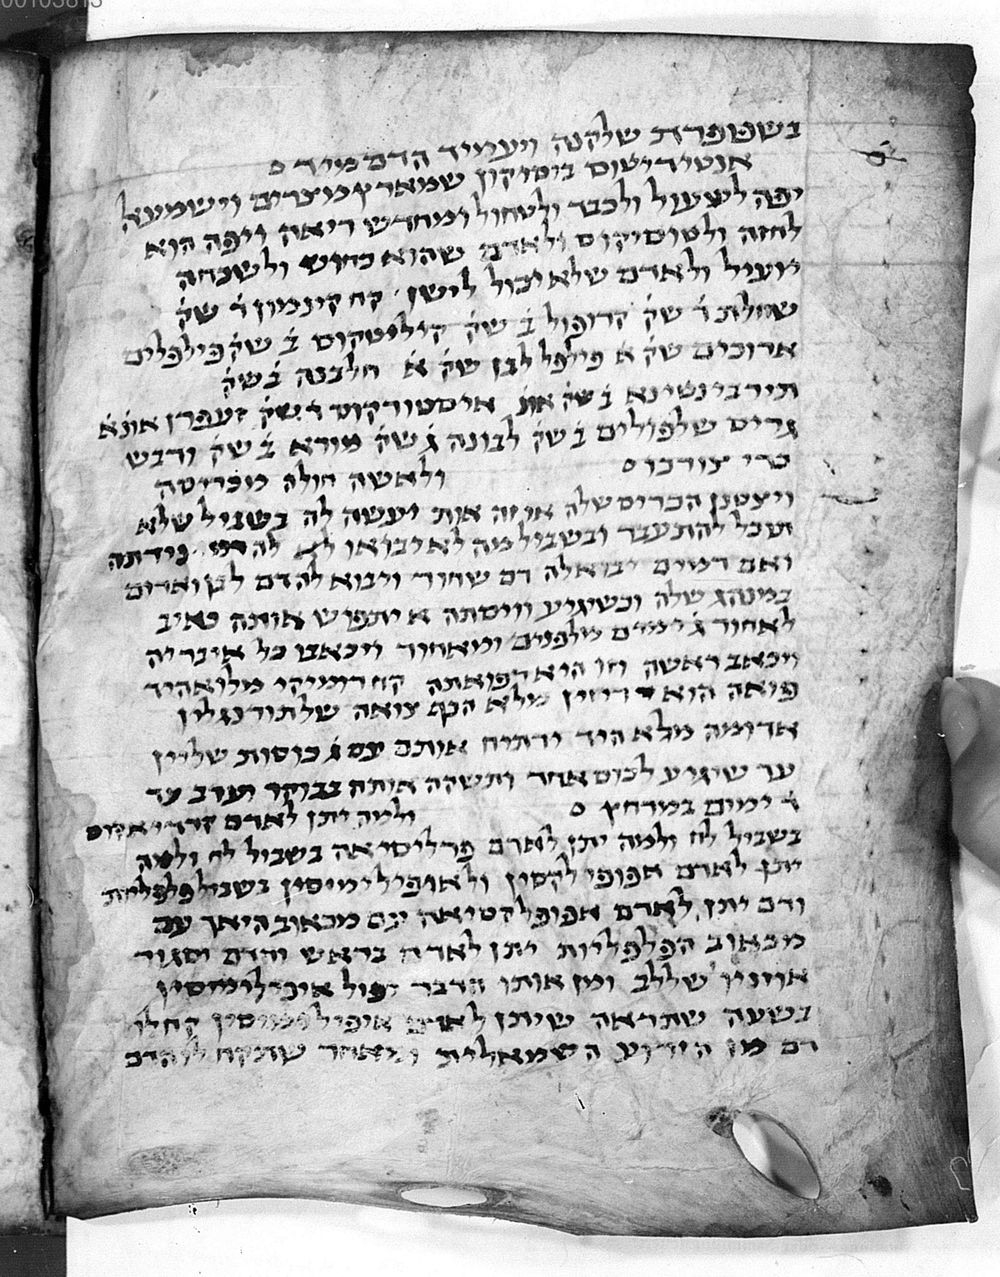 בשפופרת שלקנה ויעמיד הדם מיד
אנטידיטוס ביסיקון שמארץ מיצרים וישמעאל
יפה לשיעול ולכבד ולטחול ומחדש ריאה ויפה הוא
לחזה ולטוסיקוס ולאדם שהוא כחוש ולשכחה
יועיל ולאדם שלא יכול לישן קח קינמון ד שק
שבולת ד שק קרופול ב שק קיליטקוס ב שק פילפלים
ארוכים שק א פילפל לבן שק א חלבנה ב שק
תירבינטינא ב שק איסטורקוס ד שק זעפרן אונא
גריס שלפולים ב שק לבונה ג שק מורא ב שק ודבש
כדי צורכו ולאשה חולה
ויצטנן הכריס שלה אי זה אות יעשה לה בשביל שלא
תוכל להתעבר ובשביל מה לא יבואו לה נידתה
ואם דמים יבוא לה דם שחור ויבוא לה דם לבן ואדום
במינהג שלה וכשיגיע ווסתה יתפוש אותה כאיב
לאחור ג ימים מלפנים ומאחור ויכאבו כל אוברייה
ויכאב ראשה וזו היא רפואתה קח
פואה הוא מלא הכף צואה שלתורנגלין
אדומה מלא היד ירתיח אותם עם ג כוסות שליין
עד שיגיע לכוס אחד ותשקה אותה בבוקר וערב עד
ג ימים במרחץ ולמה יתן לאדם
בשביל לח ולמה יתן לאדם פרליסיאה בשביל לח ולמה
יתן לאדם אפופילקסין ולאופילימיסין בשביל פלפליות
ודם יתן לאדם אפופלקסיאה עם מכאוב היאך עם
מכאוב הפלפליות יתן לאדם בראש והדם יסגור
שללב ומן אותו הדבר יפול אופילימסין
בשעה שתראה שיתן לאדם אופילימיסין קח לו
דם מן הזרוע השמאלית ומאחר שתקח לו הדם